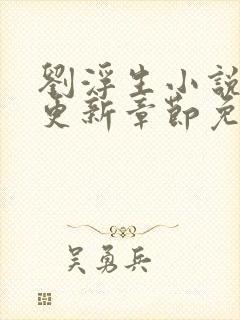 劉浮生小說
更新章節免
吴勇兵